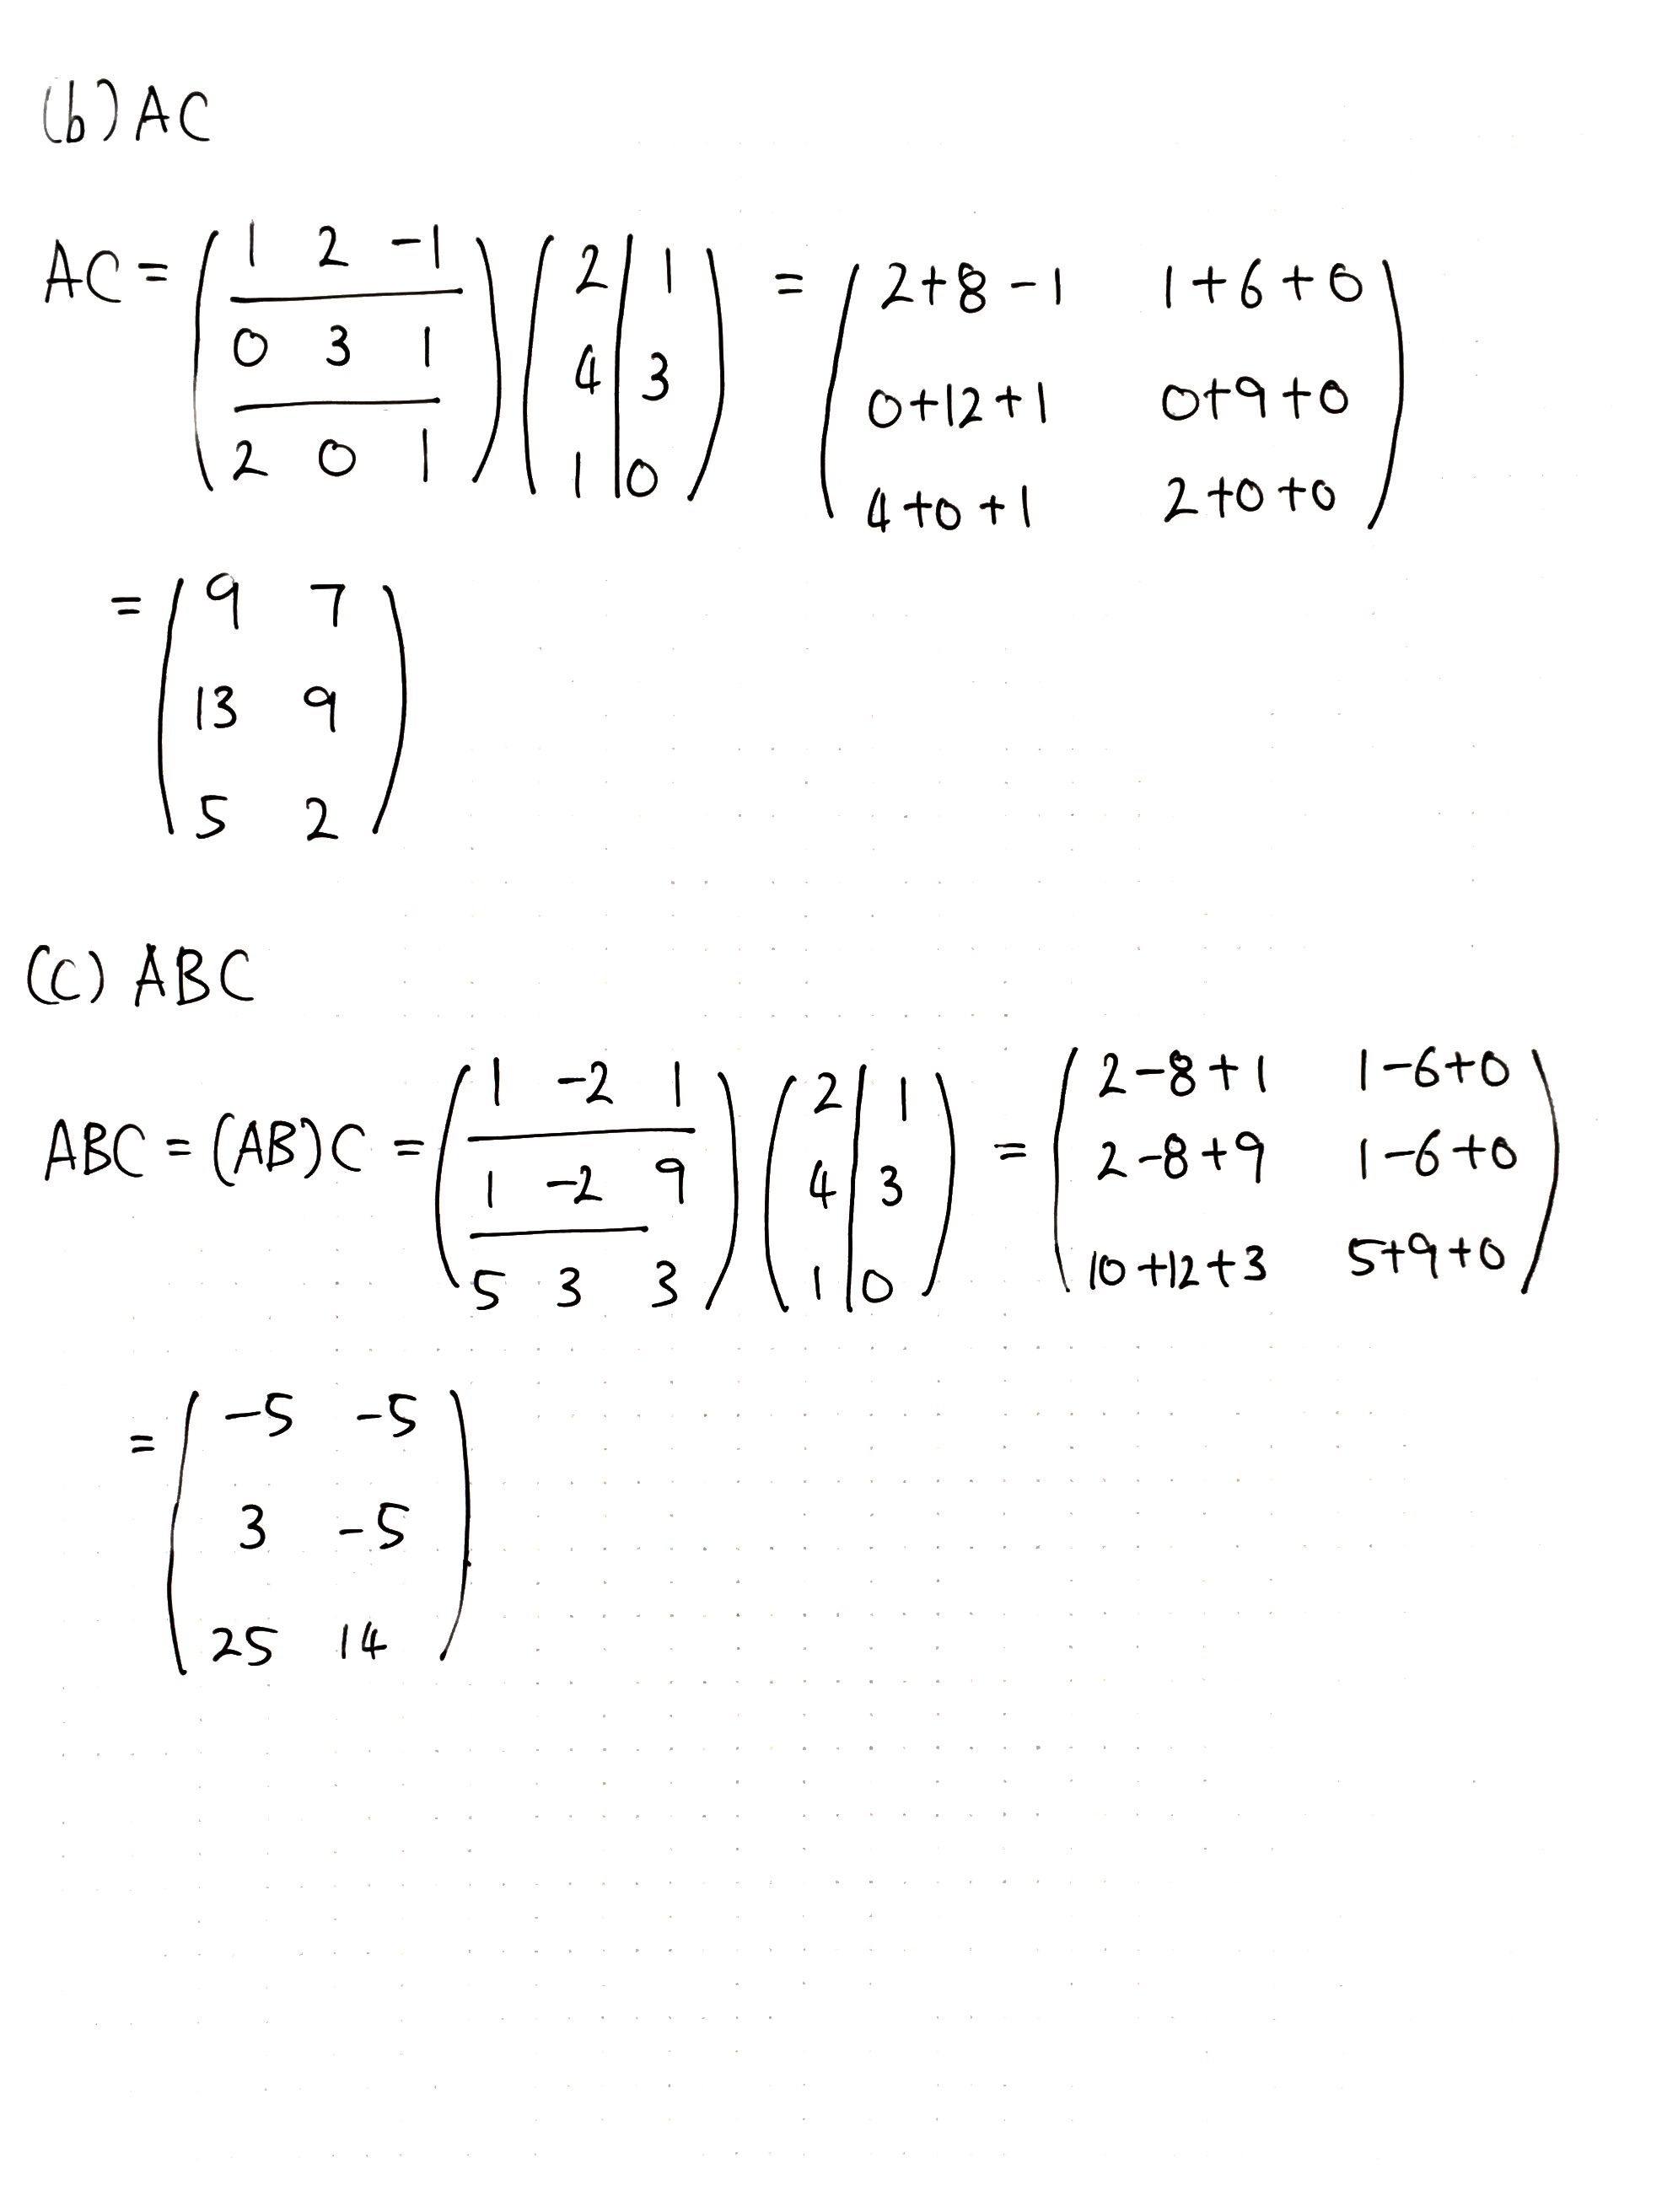 (b) AC
AC = ( 1 2 -1 / 0 3 1 / 2 0 1 ) ( 2 1 / 4 3 / 1 0 ) = ( 2+8-1 1+6+0 / 0+12+1 0+9+0 / 4+0+1 2+0+0 )
= ( 9 7 / 13 9 / 5 2 )
(c) ABC
ABC = (AB)C = ( 1 -2 1 / 1 -2 9 / 5 3 3 ) ( 2 1 / 4 3 / 1 0 ) = ( 2-8+1 1-6+0 / 2-8+9 1-6+0 / 10+12+3 5+9+0 )
= ( -5 -5 / 3 -5 / 25 14 )